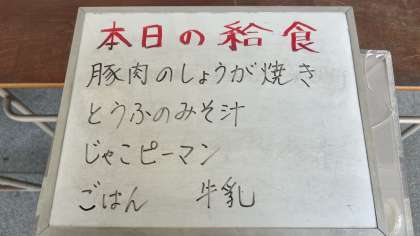 本日の給食
豚肉のしょうが焼き
とうふのみそ汁
じゃこピーマン
ごはん　牛乳